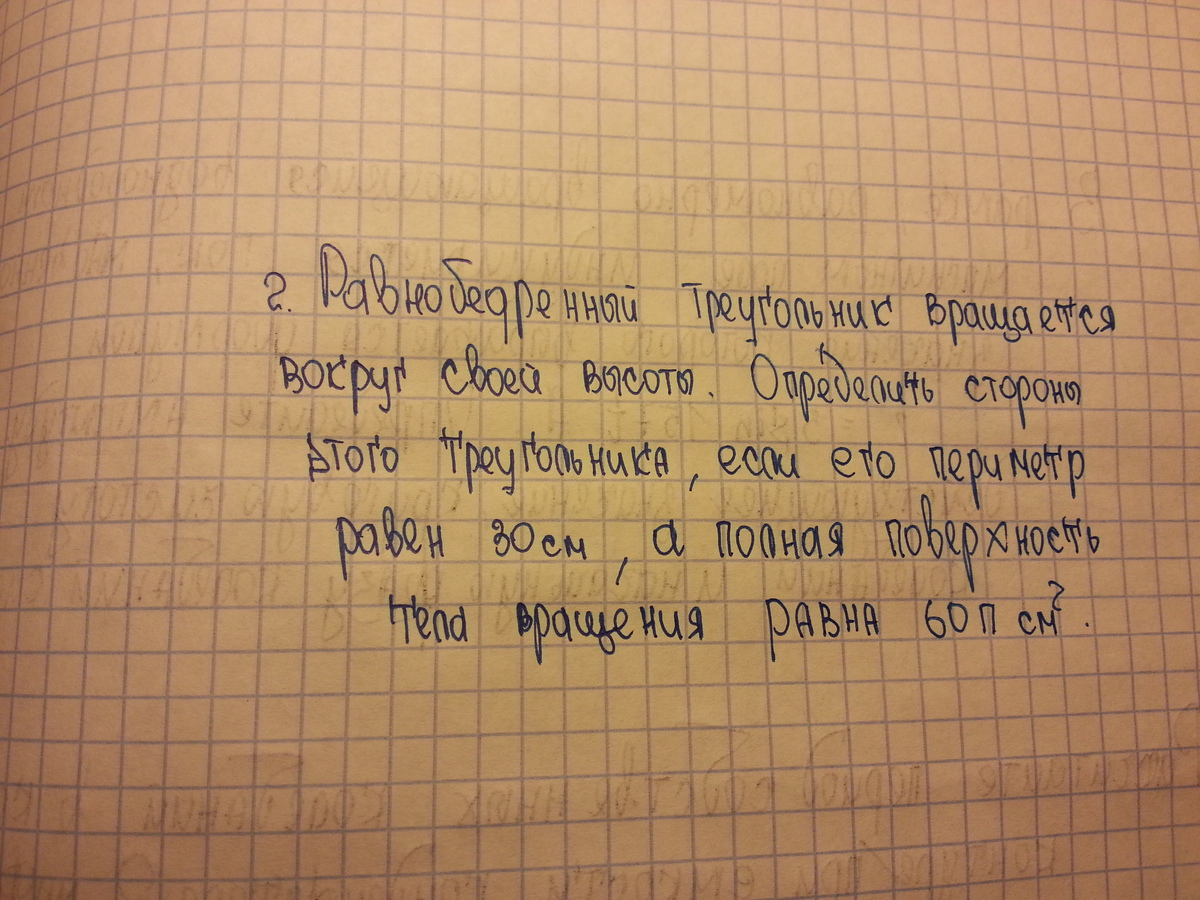 2. Равнобедренный треугольник вращается
вокруг своей высоты. Определить стороны
этого треугольника, если его периметр
равен 30 см, а полная поверхность
тела вращения равна 60 п см².